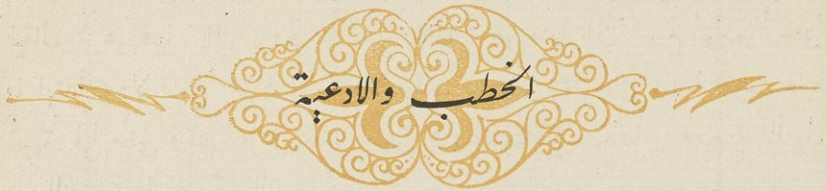 الخطب والادعية